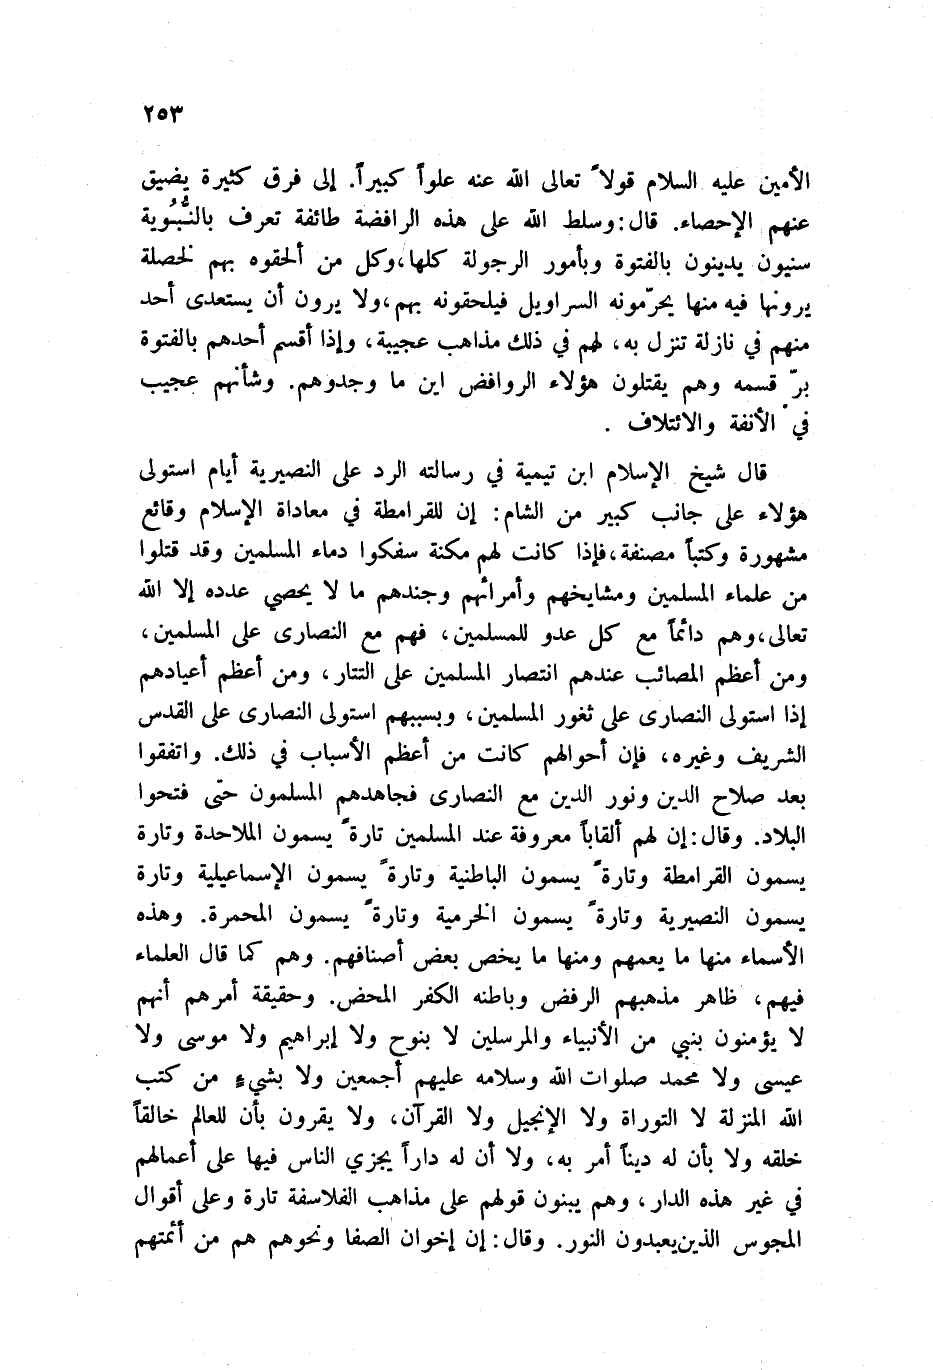 ٢٥٣
الأمين عليه السلام قولاً تعالى الله عنه علواً كبيراً. إلى فرق كثيرة يضيق
عنهم الإحصاء. قال: وسلط الله على هذه الرافضة طائفة تعرف بالنُّبُوية
سنيون يدينون بالفتوة وبأمور الرجولة كلها، وكل من ألحقوه بهم لخصلة
يرونها فيه منها يحرّمونه السراويل فيلحقونه بهم، ولا يرون أن يستعدى أحد
منهم في نازلة تنزل به، لهم في ذلك مذاهب عجيبة، وإذا أقسم أحدهم بالفتوة
برّ قسمه وهم يقتلون هؤلاء الروافض اين ما وجدوهم. وشأنهم عجيب
في الأنفة والائتلاف .
قال شيخ الإسلام ابن تيمية في رسالته الرد على النصيرية أيام استولى
هؤلاء على جانب كبير من الشام: إن للقرامطة في معاداة الإسلام وقائع
مشهورة وكتباً مصنفة، فإذا كانت لهم مكنة سفكوا دماء المسلمين وقد قتلوا
من علماء المسلمين ومشايخهم وأمرائهم وجندهم ما لا يحصي عدده إلا الله
تعالى، وهم دائماً مع كل عدو للمسلمين، فهم مع النصارى على المسلمين،
ومن أعظم المصائب عندهم انتصار المسلمين على التتار، ومن أعظم أعيادهم
إذا استولى النصارى على ثغور المسلمين، وبسببهم استولى النصارى على القدس
الشريف وغيره، فإن أحوالهم كانت من أعظم الأسباب في ذلك. واتفقوا
بعد صلاح الدين ونور الدين مع النصارى فجاهدهم المسلمون حتّى فتحوا
البلاد. وقال: إن لهم ألقاباً معروفة عند المسلمين تارة ً يسمون الملاحدة وتارة
يسمون القرامطة وتارة ً يسمون الباطنية وتارة ً يسمون الإسماعيلية وتارة
يسمون النصيرية وتارة ً يسمون الخرمية وتارة ً يسمون المحمرة. وهذه
الأسماء منها ما يعمهم ومنها ما يخص بعض أصنافهم. وهم كما قال العلماء
فيهم، ظاهر مذهبهم الرفض وباطنه الكفر المحض. وحقيقة أمرهم أنهم
لا يؤمنون بنبي من الأنبياء والمرسلين لا بنوح ولا إبراهيم ولا موسى ولا
عيسى ولا محمد صلوات الله وسلامه عليهم أجمعين ولا بشيءٍ من كتب
الله المنزلة لا التوراة ولا الإنجيل ولا القرآن، ولا يقرون بأن للعالم خالقاً
خلقه ولا بأن له ديناً أمر به، ولا أن له داراً يجزي الناس فيها على أعمالهم
في غير هذه الدار، وهم يبنون قولهم على مذاهب الفلاسفة تارة وعلى أقوال
المجوس الذين يعبدون النور. وقال: إن إخوان الصفا ونحوهم هم من أئمتهم